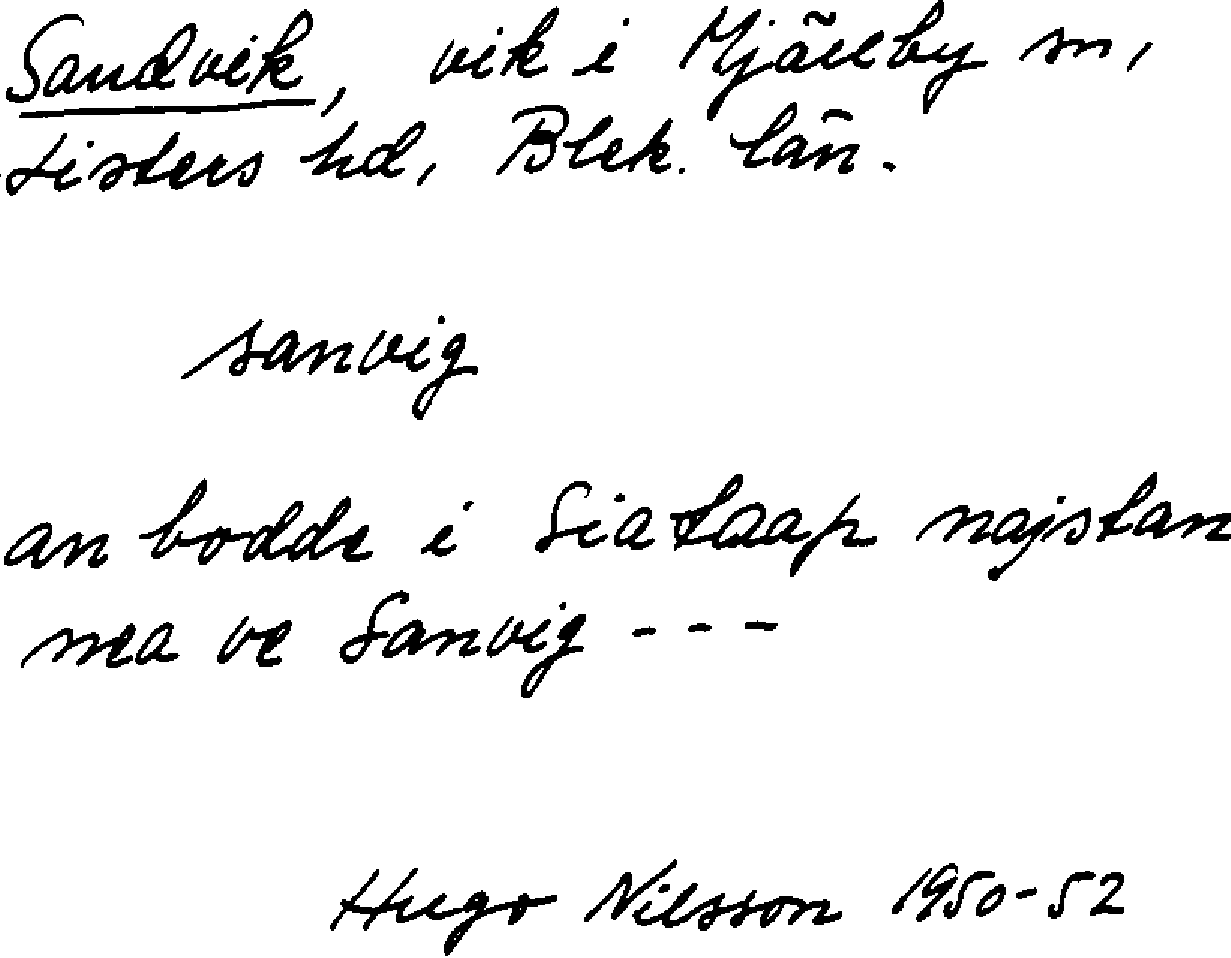 Sandvik, vik i Mjällby sn,
Listers hd, Blek. län.
sanvig
an bodde i Siataap najstan
nea ve Sanvig - - -
Hugo Nilsson 1950-52